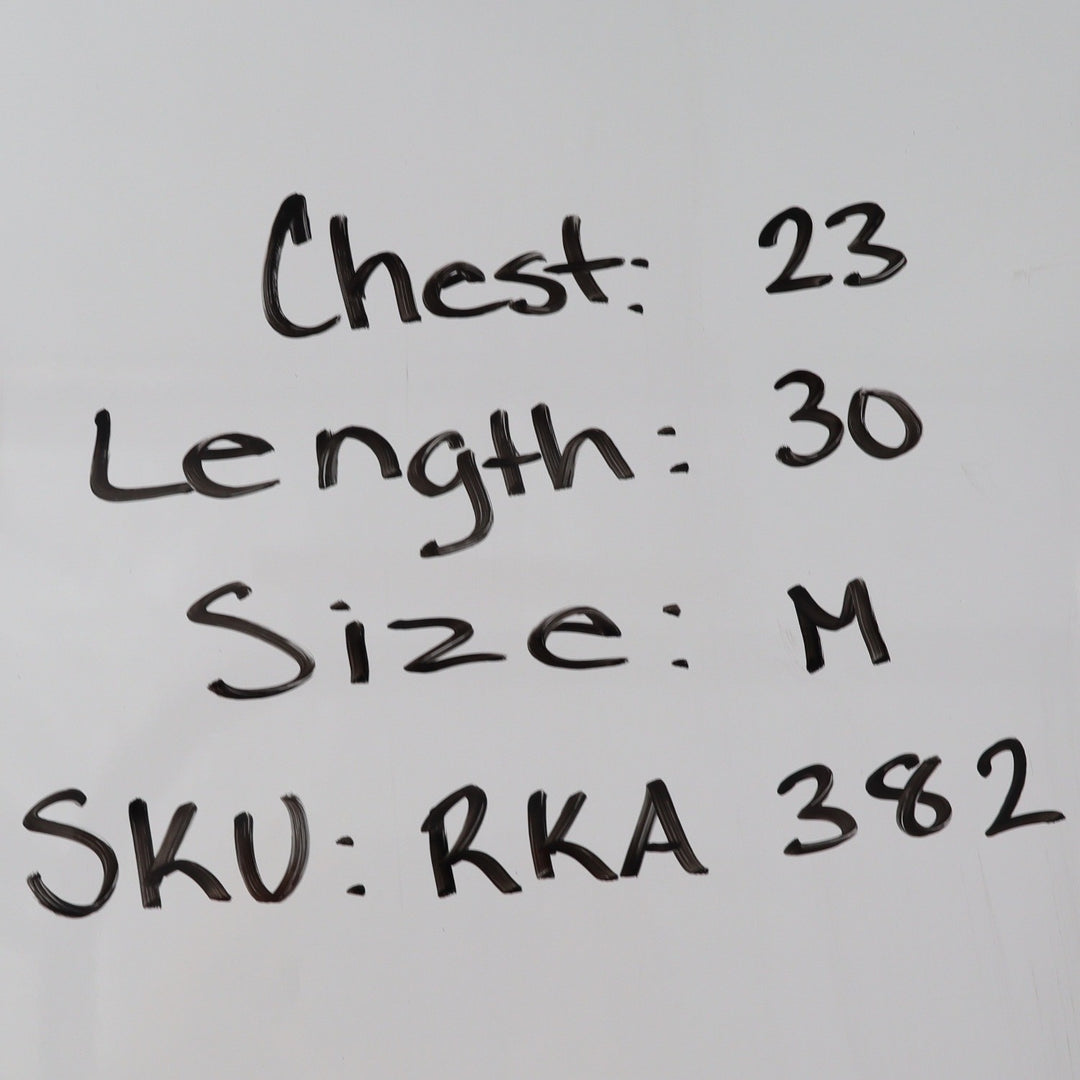 Chest: 23
Length: 30
Size: M
SKU: RKA 382